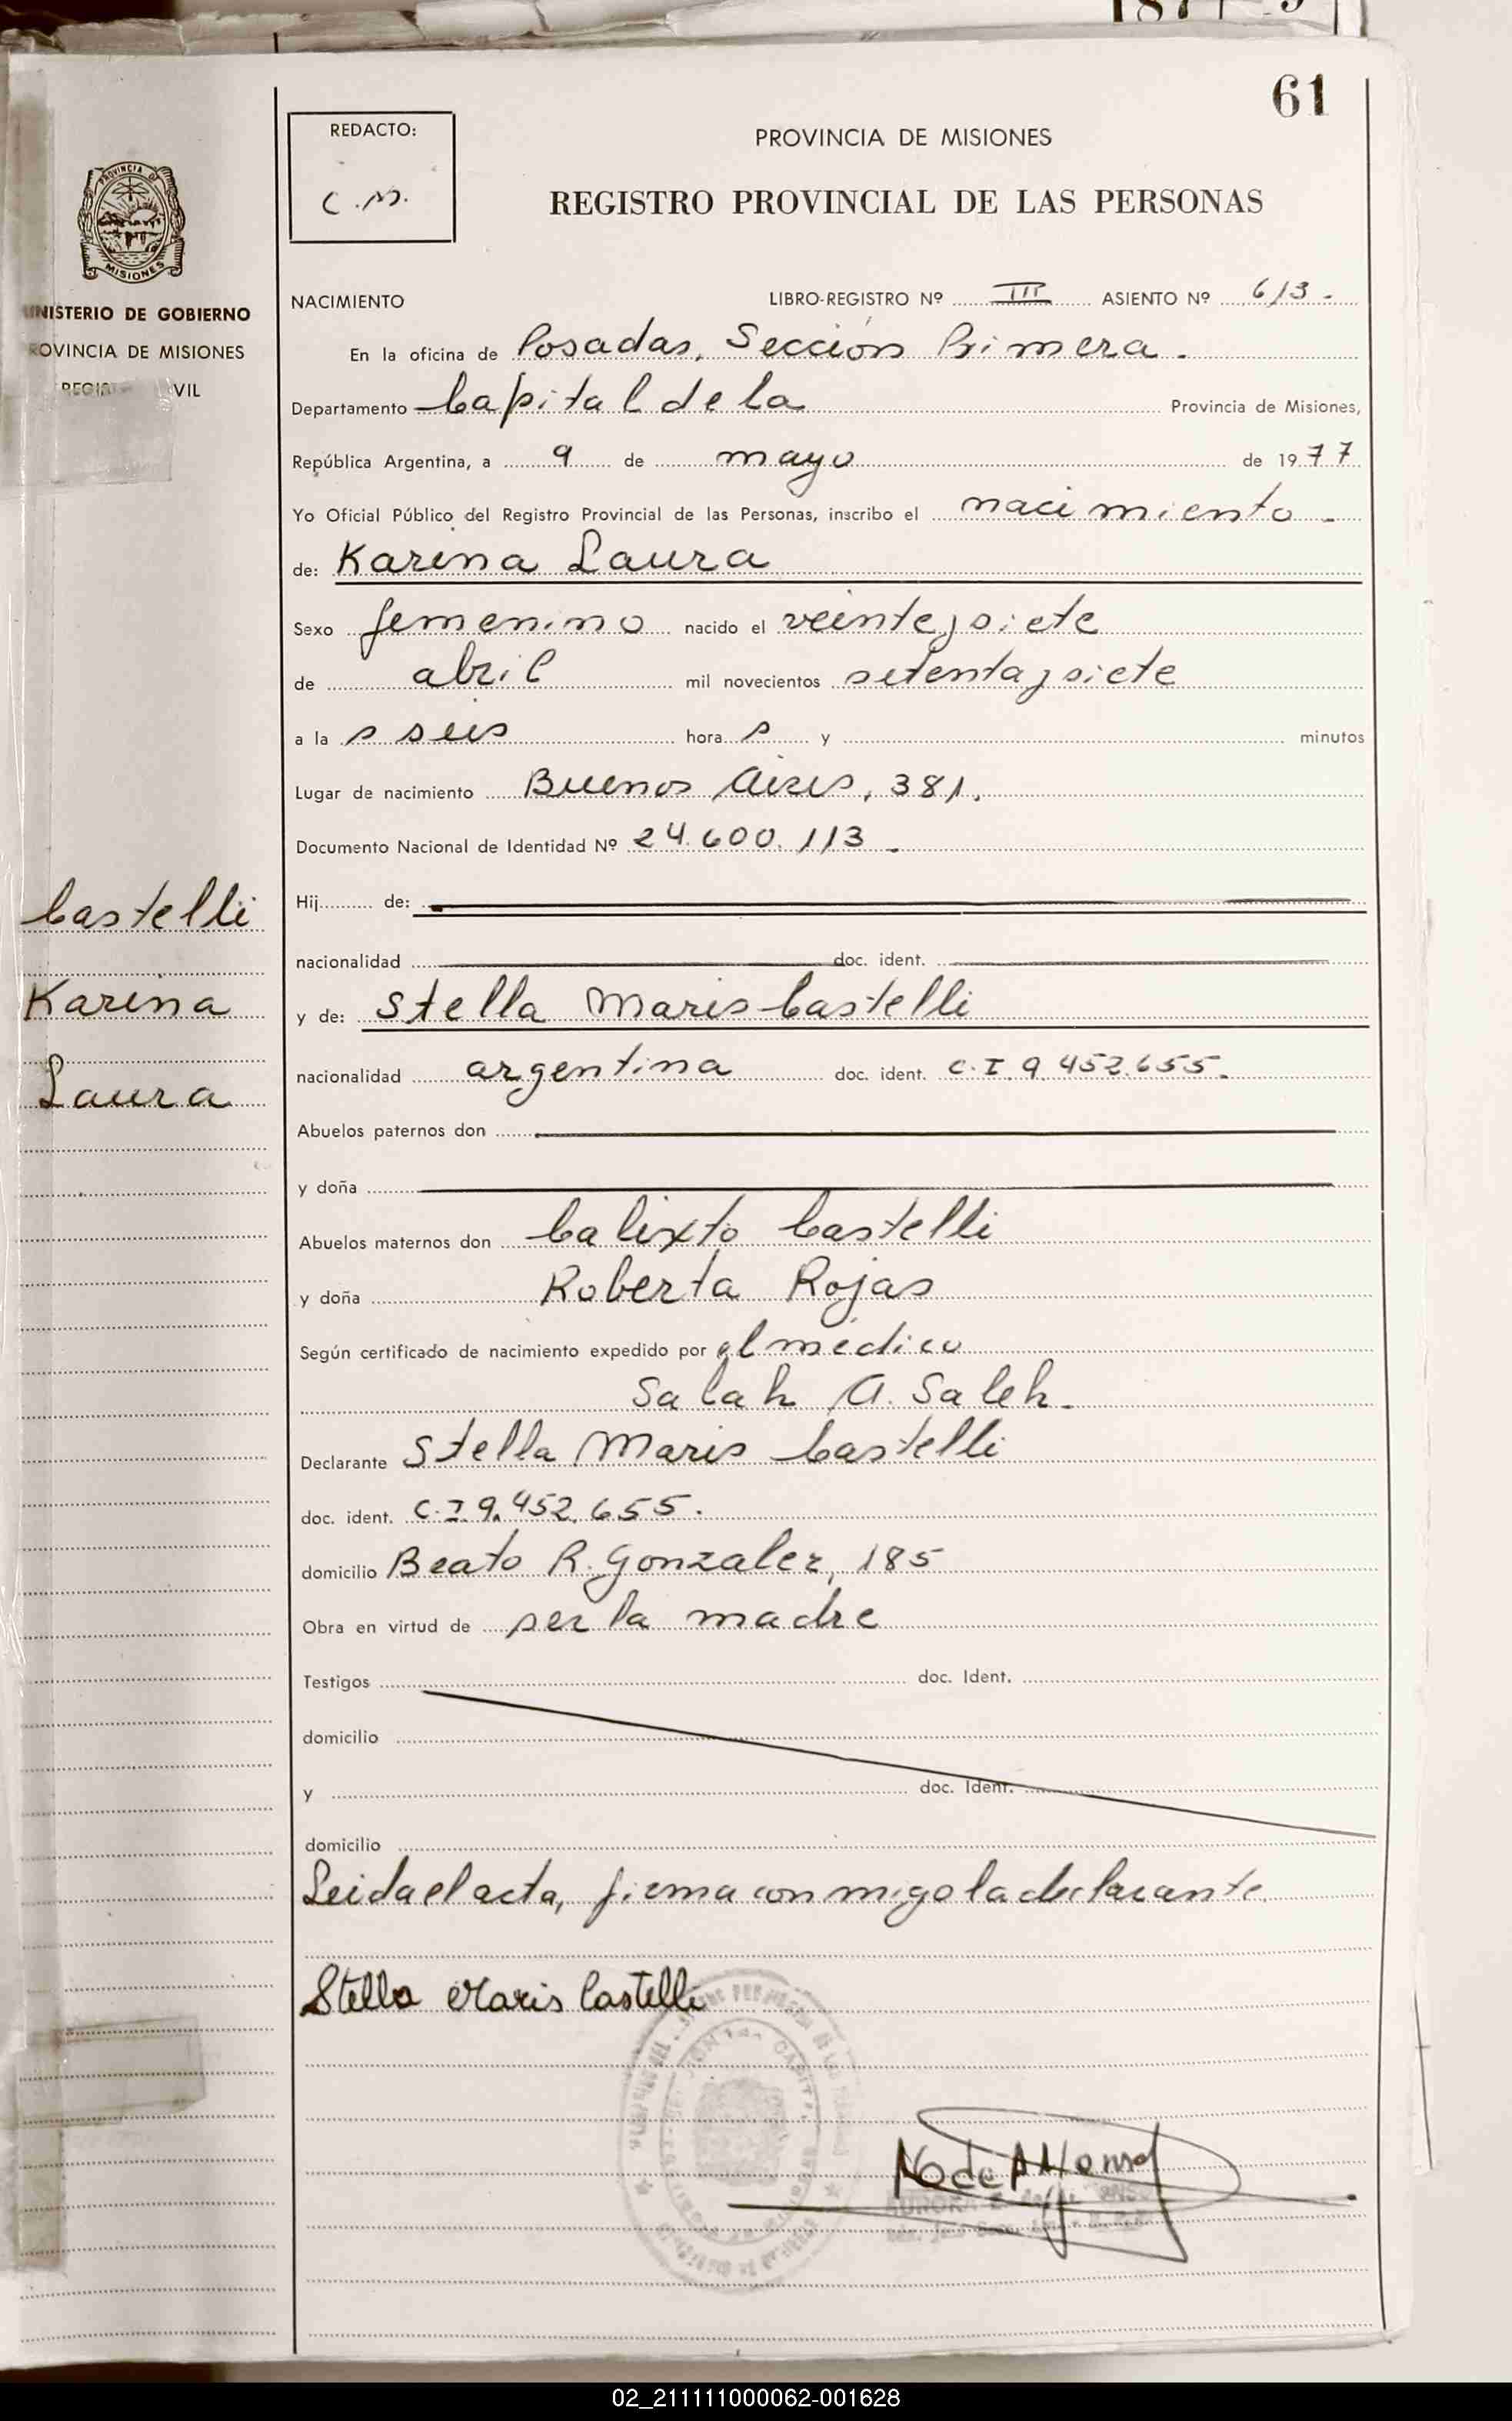 61
REDACTO:
C.M.
PROVINCIA DE MISIONES
REGISTRO PROVINCIAL DE LAS PERSONAS
PROVINCIA DE
MISIONES
MINISTERIO DE GOBIERNO
PROVINCIA DE MISIONES
NACIMIENTO LIBRO-REGISTRO Nº III ASIENTO Nº 613.
En la oficina de Posadas, Sección Primera.
Departamento Capital de la Provincia de Misiones,
República Argentina, a 9 de mayo de 1977
Yo Oficial Público del Registro Provincial de las Personas, inscribo el nacimiento.
de: Karina Laura
Sexo femenino nacido el veintejsiete
de abril mil novecientos setentajsiete
a la s seis hora s y minutos
Lugar de nacimiento Buenos Aires, 381.
Documento Nacional de Identidad Nº 24.600.113.
Hij de:
nacionalidad doc. ident.
y de: Stella Maris Castelli
nacionalidad argentina doc. ident. C.I. 9.452.655.
Abuelos paternos don
y doña
Abuelos maternos don Calixto Castelli
y doña Roberta Rojas
Según certificado de nacimiento expedido por el médico
Salah A. Saleh.
Declarante Stella Maris Castelli
doc. ident. C.I 9.452.655.
domicilio Beato R. Gonzalez, 185
Obra en virtud de ser la madre
Testigos doc. Ident.
domicilio
y doc. Ident.
domicilio
Leida el acta, firma conmigo la declarante.
Stella Maris Castelli
Castelli
Karina
Laura
02_211111000062-001628